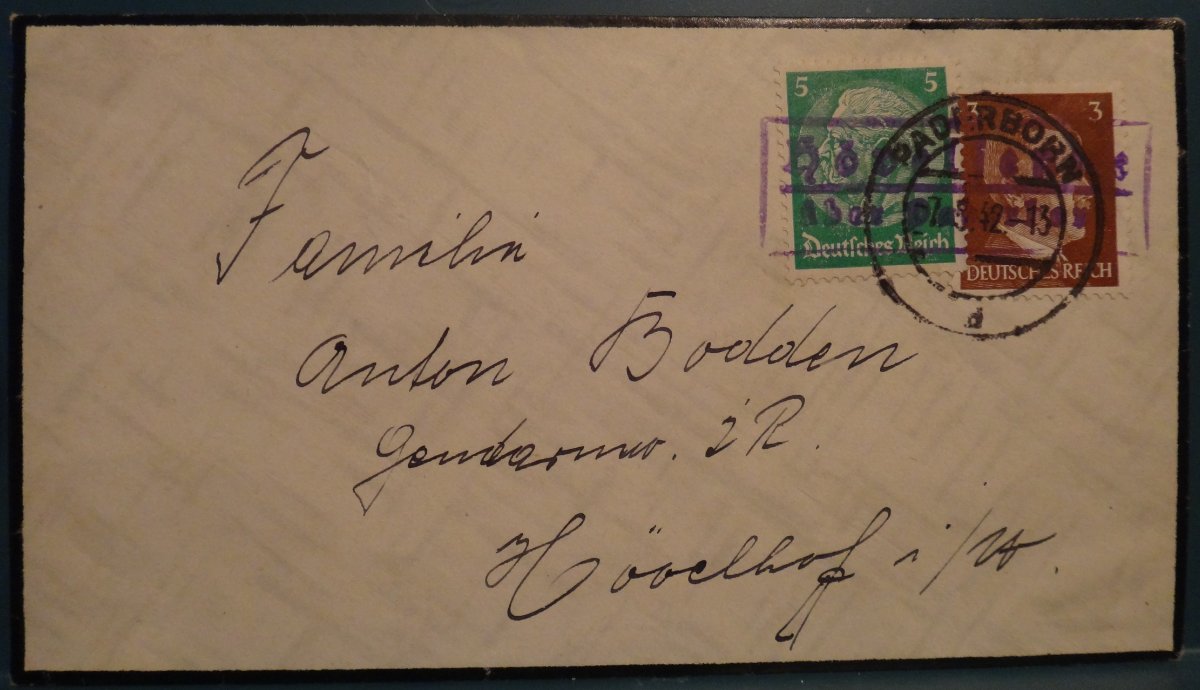 5 5
Deutsches Reich
3 3
DEUTSCHES REICH
PADERBORN
27.8.42.-13
d
über Paderborn
Familie
Anton Bodden
Gendarmw. i R.
Hövelhof i/W.